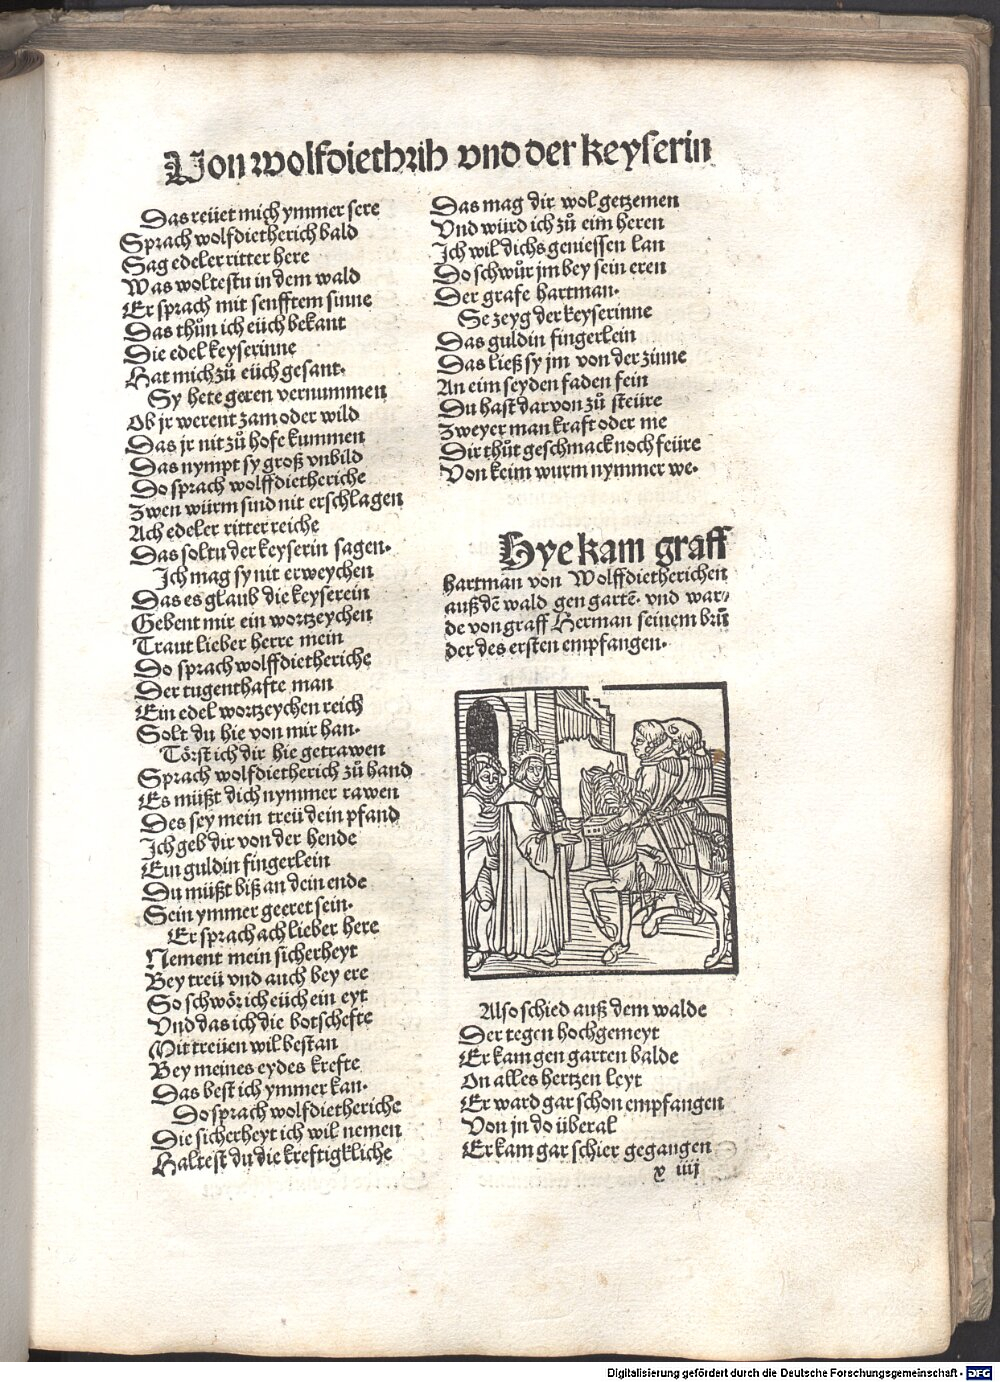 Von wolfdiethrih vnd der keyserin
Das reüet mich ymmer sere
Sprach wolfdietherich bald
Sag edeler ritter here
Was woltestu in dem wald
Er sprach mit senfftem sinne
Das thůn ich eüch bekant
Die edel keyserinne
Hat mich zů eüch gesant.
Sy hete geren vernummen
Ob jr werent zam oder wild
Das jr nit zů hofe kummen
Das nympt sy groß vnbild
Do sprach wolffdietheriche
Zwen würm sind nit erschlagen
Ach edeler ritter reiche
Das soltu der keyserin sagen.
Ich mag sy nit erweychen
Das es glaub die keyserein
Gebent mir ein wortzeychen
Traut lieber herre mein
Do sprach wolffdietheriche
Der tugenthafte man
Ein edel wortzeychen reich
Solt du hie von mir han.
Törst ich dir hie getrawen
Sprach wolfdietherich zů hand
Es müßt dich nymmer rawen
Des sey mein treü dein pfand
Ich geb dir von der hende
Ein guldin fingerlein
Du müßt biß an dein ende
Sein ymmer geeret sein.
Er sprach ach lieber here
Nement mein sicherheyt
Bey treü vnd auch bey ere
So schwör ich eüch ein eyt
Vnd das ich die botschefte
Mit treüen wil bestan
Bey meines eydes krefte
Das best ich ymmer kan.
Do sprach wolfdietheriche
Die sicherheyt ich wil nemen
Haltest du die kreftigkliche
Das mag dir wol getzemen
Vnd würd ich zů eim heren
Ich wil dichs geniessen lan
Do schwůr jm bey sein eren
Der grafe hartman.
Se zeyg der keyserinne
Das guldin fingerlein
Das ließ sy jm von der zinne
An eim seyden faden fein
Du hast darvon zů steüre
Zweyer man kraft oder me
Dir thůt geschmack noch feüre
Von keim wurm nymmer we.
Hye kam graff
hartman von Wolffdietherichen
auß dē wald gen gartē. vnd war⸗
de von graff Herman seinem brů
der des ersten empfangen.
Also schied auß dem walde
Der tegen hochgemeyt
Er kam gen garten balde
On alles hertzen leyt
Er ward gar schon empfangen
Von jn do überal
Er kam gar schier gegangen
x iiij
Digitalisierung gefördert durch die Deutsche Forschungsgemeinschaft - DFG